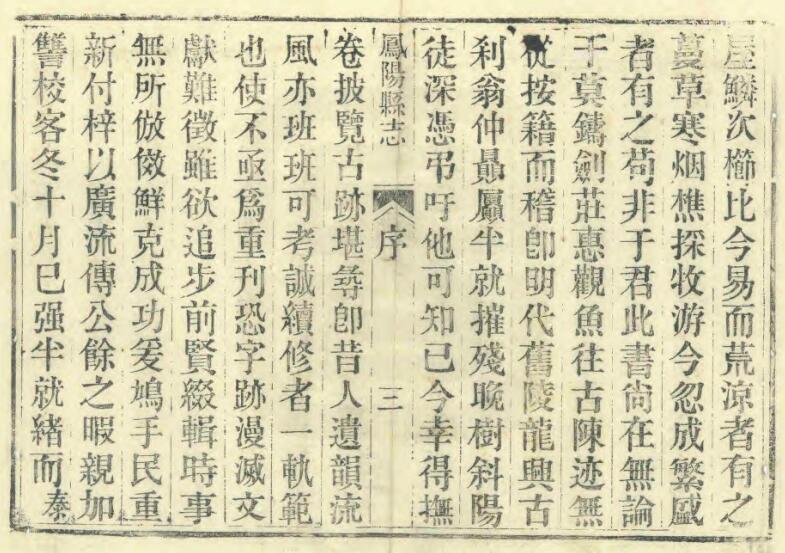 屋鱗次櫛比今易而荒涼者有之
蔓草寒烟樵採牧游今忽成繁盛
者有之苟非于君此書尚在無論
干莫鑄劍莊惠觀魚往古陳迹無
從按籍而稽卽明代舊陵龍興古
刹翁仲贔屭半就摧殘晚樹斜陽
徒深憑弔吁他可知已今幸得撫
鳳陽縣志
序
三
卷披覽古跡堪尋卽昔人遺韻流
風亦班班可考誠續修者一軌範
也使不亟爲重刊恐字跡漫滅文
獻難徵雖欲追步前賢綴輯時事
無所倣傚鮮克成功爰鳩手民重
新付梓以廣流傳公餘之暇親加
讐校客冬十月已强半就緒而奉